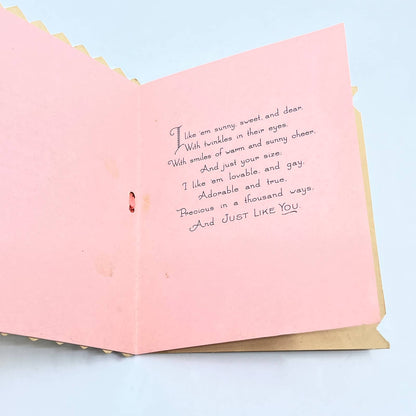 I like 'em sunny, sweet, and dear,
With twinkles in their eyes,
With smiles of warm and sunny cheer,
And just your size;
I like 'em lovable, and gay,
Adorable and true,
Precious in a thousand ways,
And JUST LIKE YOU.